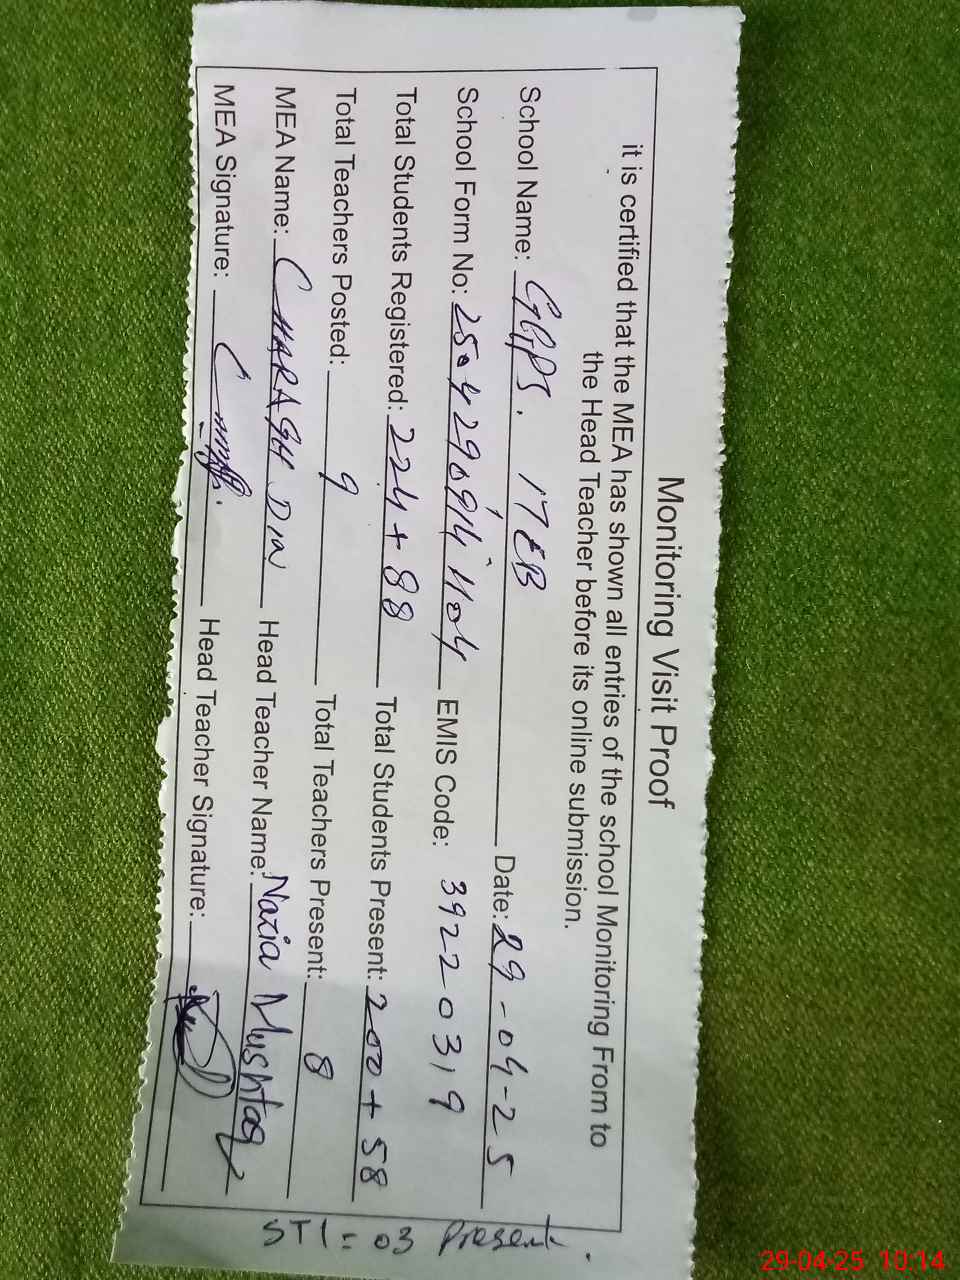 Monitoring Visit Proof
it is certified that the MEA has shown all entries of the school Monitoring From to
the Head Teacher before its online submission.
School Name: GGPS. 17EB Date: 29-04-25
School Form No: 250429091411104 EMIS Code: 39220319
Total Students Registered: 224+88 Total Students Present: 200+58
Total Teachers Posted: 9 Total Teachers Present: 8
MEA Name: CHARAGH DIN Head Teacher Name: Nazia Mushtaq
MEA Signature: Head Teacher Signature:
STI = 03 Present.
29-04-25 10:14